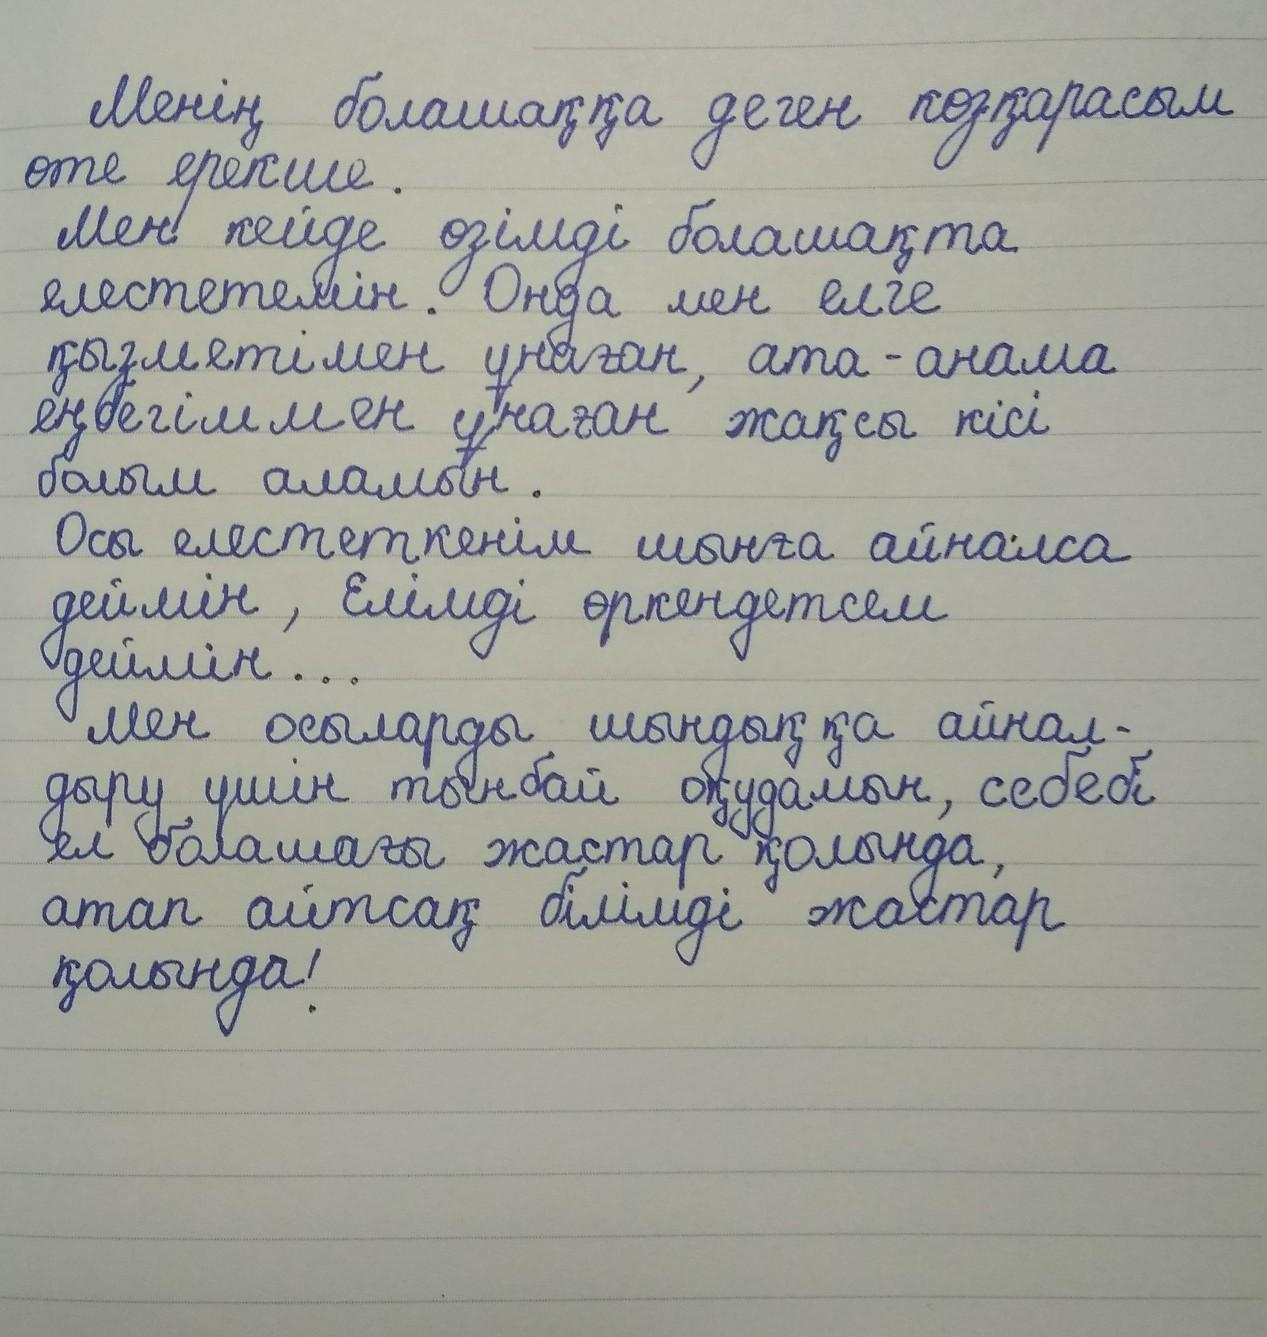 Менің болашаққа деген көзқарасым
өте ерекше.
Мен кейде өзімді болашақта
елестетемін. Онда мен елге
қызметімен ұнаған, ата-анама
еңбегіммен ұнаған жақсы кісі
болым аламын.
Осы елестеткенім шынға айналса
деймін, Елімді өркендетсем
деймін...
Мен осыларды шындыққа айнал-
дыру үшін тынбай оқудамын, себебі
ел болашағы жастар қолында,
атап айтсақ білімді жастар
қолында!